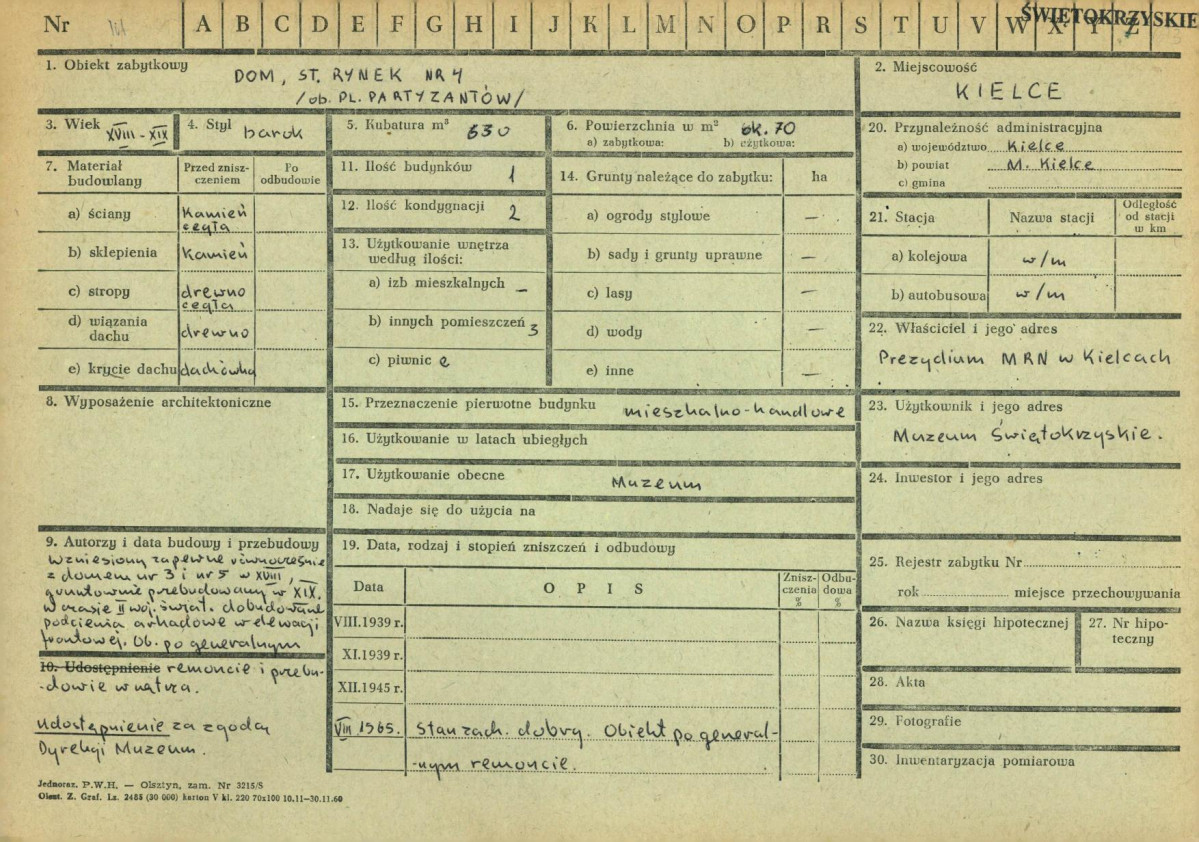 Nr A B C D E F G H I J K L M N O P R S T U V W X Y Z
ŚWIĘTOKRZYSKIE
1. Obiekt zabytkowy
DOM, ST. RYNEK NR 4
/ob. PL. PARTYZANTÓW/
2. Miejscowość
KIELCE
3. Wiek XVIII - XIX
4. Styl barok
5. Kubatura m³ 630
6. Powierzchnia w m² ok. 70
a) zabytkowa: b) użytkowa:
7. Materiał budowlany
Przed zniszczeniem
Po odbudowie
a) ściany kamień cegła
b) sklepienia kamień
c) stropy drewno cegła
d) wiązania dachu drewno
e) krycie dachu dachówka
8. Wyposażenie architektoniczne
9. Autorzy i data budowy i przebudowy
Wzniesiony zapewne równocześnie
z domem nr 3 i nr 5 w XVIII,
gruntownie przebudowany w XIX.
W czasie II woj. świat. dobudowane
podcienia arkadowe w elewacji
frontowej. Ob. po generalnym
10. Udostępnienie remoncie i przebu-
-dowie wnętrza.
Udostępnienie za zgodą
Dyrekcji Muzeum.
11. Ilość budynków 1
12. Ilość kondygnacji 2
13. Użytkowanie wnętrza
według ilości:
a) izb mieszkalnych —
b) innych pomieszczeń 3
c) piwnic 2
14. Grunty należące do zabytku: ha
a) ogrody stylowe —
b) sady i grunty uprawne —
c) lasy —
d) wody —
e) inne —
15. Przeznaczenie pierwotne budynku mieszkalno-handlowe
16. Użytkowanie w latach ubiegłych
17. Użytkowanie obecne Muzeum
18. Nadaje się do użycia na
19. Data, rodzaj i stopień zniszczeń i odbudowy
Data O P I S Zniszczenia % Odbudowa %
VIII.1939 r.
XI.1939 r.
XII.1945 r.
VIII 1965. Stan zach. dobry. Obiekt po general-
-nym remoncie.
20. Przynależność administracyjna
a) województwo Kielce
b) powiat M. Kielce
c) gmina
21. Stacja Nazwa stacji Odległość od stacji w km
a) kolejowa w/m
b) autobusowa w/m
22. Właściciel i jego adres
Prezydium MRN w Kielcach
23. Użytkownik i jego adres
Muzeum Świętokrzyskie.
24. Inwestor i jego adres
25. Rejestr zabytku Nr
rok miejsce przechowywania
26. Nazwa księgi hipotecznej
27. Nr hipoteczny
28. Akta
29. Fotografie
30. Inwentaryzacja pomiarowa
Jednoraz. P.W.H. — Olsztyn, zam. Nr 3215/S
Olszt. Z. Graf. Lz. 2485 (30 000) karton V kl. 220 70x100 10.11—30.11.60